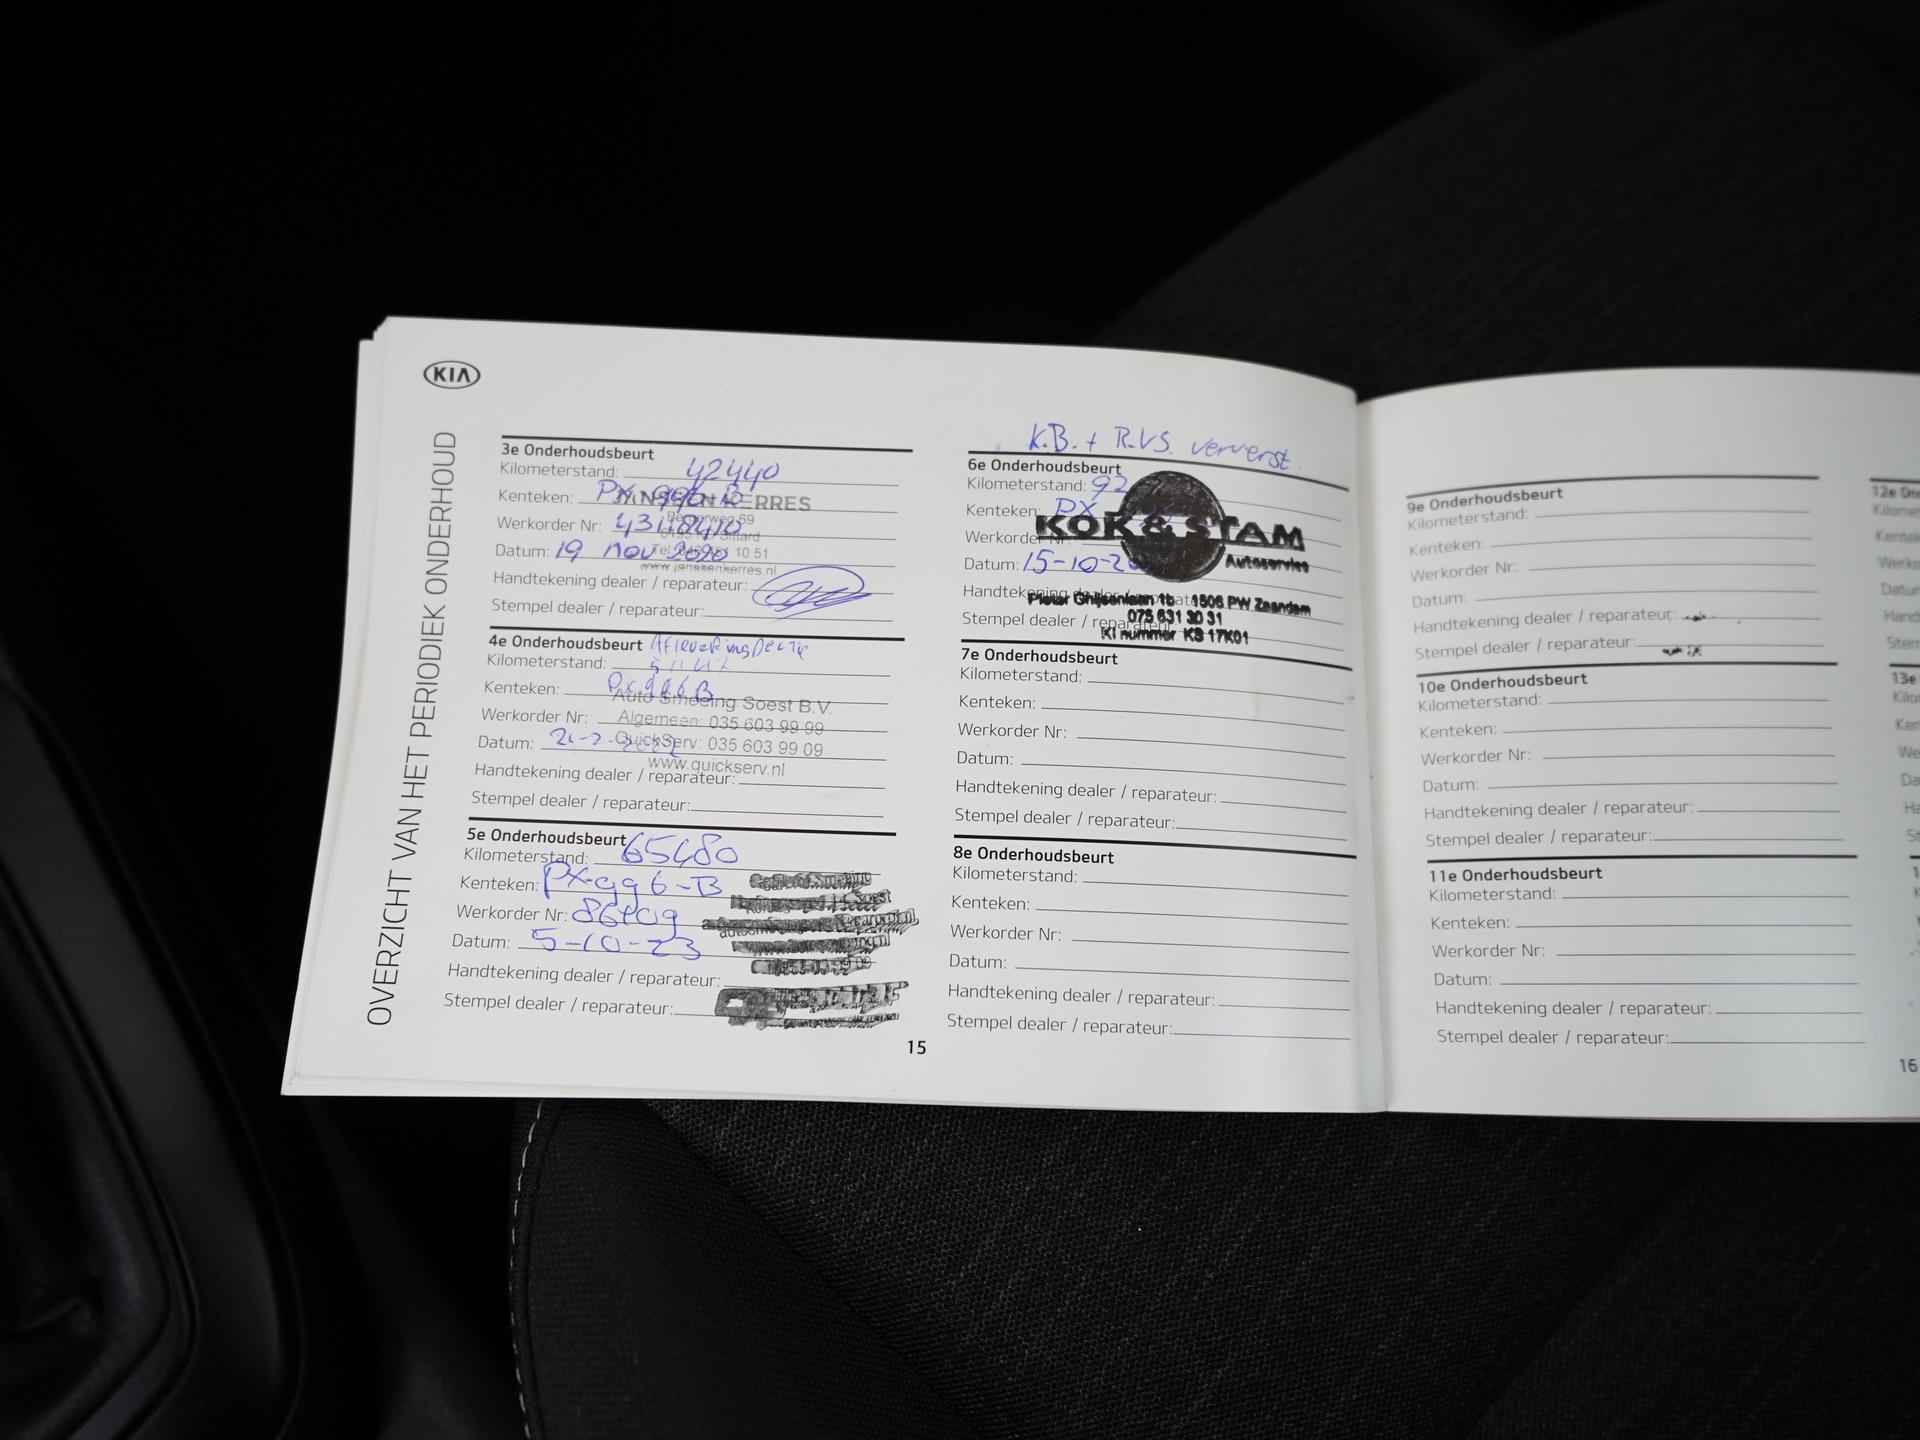 KIA
OVERZICHT VAN HET PERIODIEK ONDERHOUD
3e Onderhoudsbeurt
Kilometerstand: 42440
Kenteken: PX
Werkorder Nr:
Datum: 19 nov 2020
Handtekening dealer / reparateur:
Stempel dealer / reparateur:
KERRES
10 51
4e Onderhoudsbeurt
Kilometerstand:
Kenteken: PX 996 B
Werkorder Nr:
Datum:
Handtekening dealer / reparateur:
Stempel dealer / reparateur:
Auto Smeeing Soest B.V.
Algemeen: 035 603 99 99
QuickServ: 035 603 99 09
www.quickserv.nl
5e Onderhoudsbeurt
Kilometerstand: 65480
Kenteken: PX-996-B
Werkorder Nr:
Datum: 5-10-23
Handtekening dealer / reparateur:
Stempel dealer / reparateur:
15
K.B. + R.VS. ververst
6e Onderhoudsbeurt
Kilometerstand: 92
Kenteken: PX
Werkorder Nr:
Datum: 15-10-2
Handtekening dealer / reparateur:
Stempel dealer / reparateur:
KOK & STAM
Autoservice
Pieter Ghijsenlaan 1b 1506 PW Zaandam
075 631 30 31
KI nummer KS 17K01
7e Onderhoudsbeurt
Kilometerstand:
Kenteken:
Werkorder Nr:
Datum:
Handtekening dealer / reparateur:
Stempel dealer / reparateur:
8e Onderhoudsbeurt
Kilometerstand:
Kenteken:
Werkorder Nr:
Datum:
Handtekening dealer / reparateur:
Stempel dealer / reparateur:
9e Onderhoudsbeurt
Kilometerstand:
Kenteken:
Werkorder Nr:
Datum:
Handtekening dealer / reparateur:
Stempel dealer / reparateur:
10e Onderhoudsbeurt
Kilometerstand:
Kenteken:
Werkorder Nr:
Datum:
Handtekening dealer / reparateur:
Stempel dealer / reparateur:
11e Onderhoudsbeurt
Kilometerstand:
Kenteken:
Werkorder Nr:
Datum:
Handtekening dealer / reparateur:
Stempel dealer / reparateur:
12e
13e
16